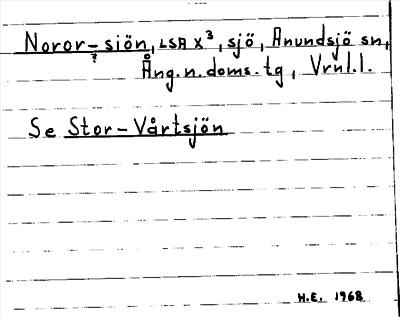 Noror-siön, LSA X³, sjö, Anundsjö sn,
?
Ång.n.doms.tg, Vrnl.l.
Se Stor-Vårtsjön
H.E. 1968